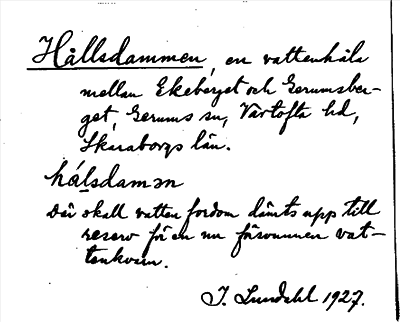 Hållsdammen, en vattenhåla
mellan Ekeberget och Gerumsber-
get, Gerums sn, Vartofta hd,
Skaraborgs län.
hålsdamən
Där skall vatten fordom dämts upp till
reserv för en nu försvunnen vat-
tenkvarn.
J. Lundahl 1927.